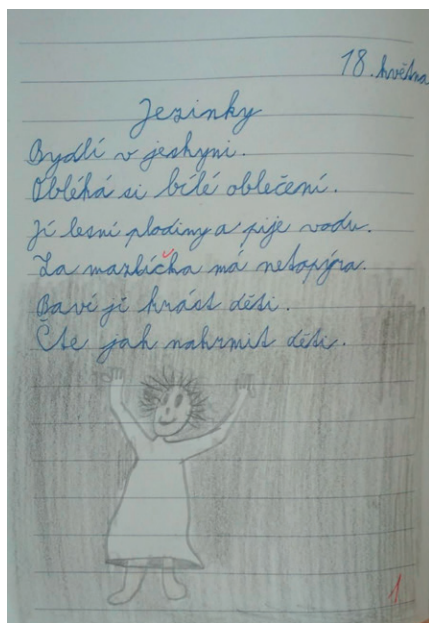 18. května
Jezinky
Bydlí v jeskyni.
Obléhá si bílé oblečení.
Jí lesní plodiny a pije vodu.
Za mazlíčka má netopýra.
Baví jí krást děti.
Čte jak nakrmit děti.
1